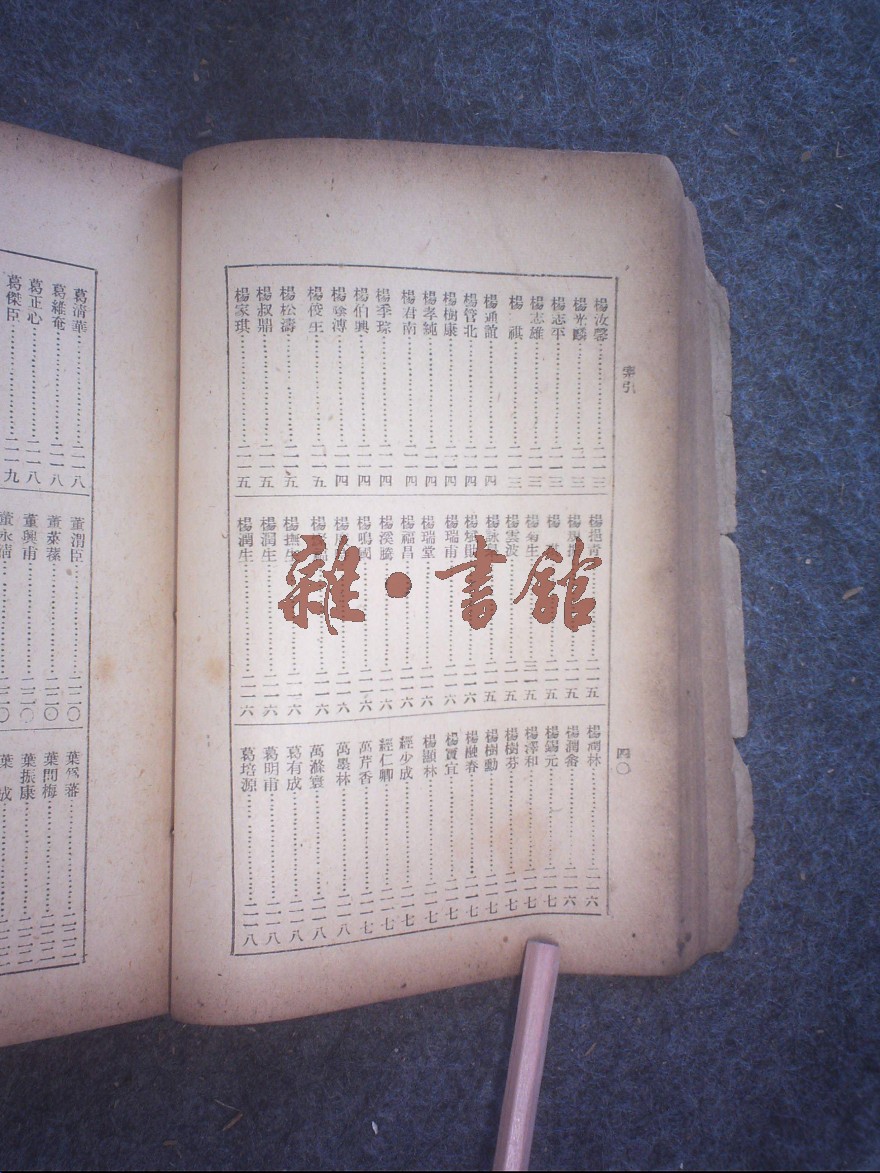 索引
四〇
楊汝馨…………二一三
楊光麟…………二一三
楊志平…………二一三
楊志雄…………二一三
楊　祺…………二一三
楊通誼…………二一四
楊管北…………二一四
楊樹康…………二一四
楊孝純…………二一四
楊君南…………二一四
楊季琮…………二一四
楊伯興…………二一四
楊　溥…………二一四
楊俊生…………二一五
楊松濤…………二一五
楊叔鼎…………二一五
楊家琪…………二一五
楊　青…………二一五
楊…………二一五
楊…………二一五
楊菊生…………二一五
楊雲波…………二一五
楊詠…………二一五
楊…………二一六
楊瑞甫…………二一六
楊瑞堂…………二一六
楊福昌…………二一六
楊溪騰…………二一六
楊鳴…………二一六
楊…………二一六
楊…………二一六
楊撫生…………二一六
楊潤生…………二一六
楊潤生…………二一六
楊　林…………二一六
楊潤畬…………二一六
楊錫元…………二一七
楊澤和…………二一七
楊樹芬…………二一七
楊樹勳…………二一七
楊融春…………二一七
楊寶宜…………二一七
楊顯林…………二一七
經少成…………二一七
經仁卿…………二一七
萬芹香…………二一七
萬墨林…………二一八
萬滌寰…………二一八
葛有成…………二一八
葛明甫…………二一八
葛培源…………二一八
葛清華…………二一八
葛維菴…………二一八
葛正心…………二一八
葛傑臣…………二一九
董渭臣…………二二〇
董　蓀…………二二〇
董興甫…………二二〇
董永清
葉　蕃
葉問梅
葉振康
葉　成
雜·書館